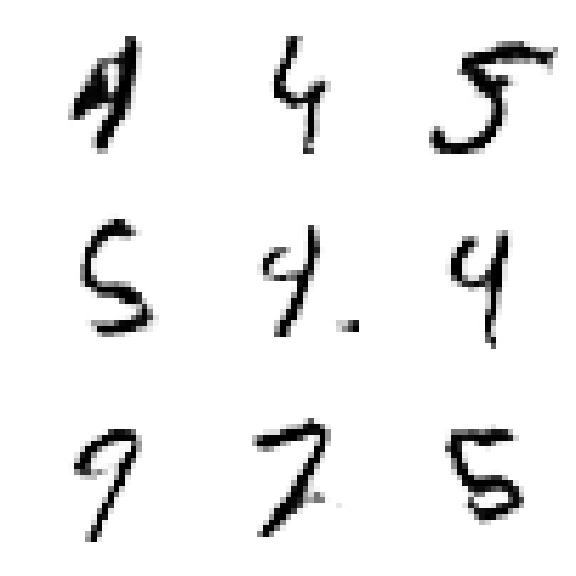 4 4 5
5 4. 4
9 7 5